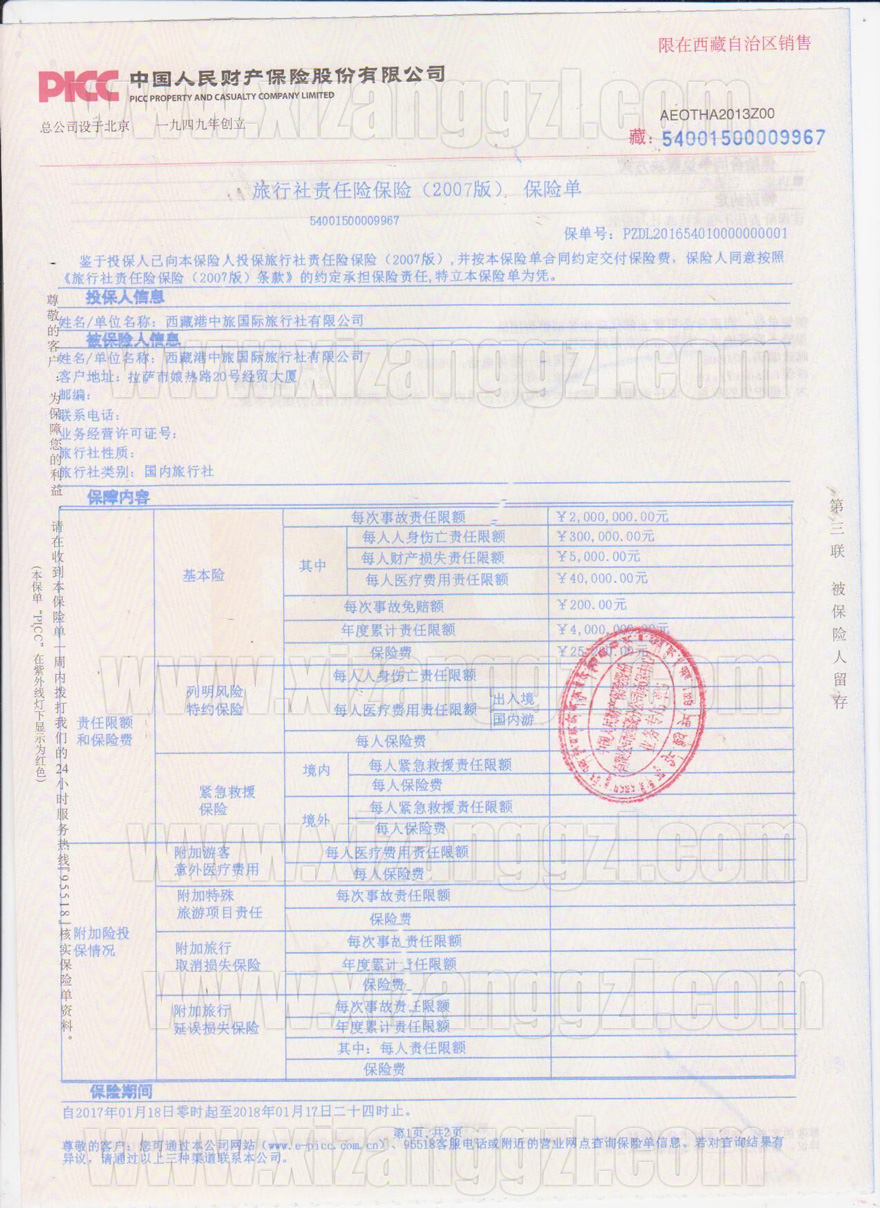 限在西藏自治区销售
PICC 中国人民财产保险股份有限公司
PICC PROPERTY AND CASUALTY COMPANY LIMITED
总公司设于北京 一九四九年创立
AEOTHA2013Z00
藏: 54001500009967
旅行社责任险保险(2007版) 保险单
54001500009967
保单号: PZDL201654010000000001
鉴于投保人已向本保险人投保旅行社责任险保险(2007版),并按本保险单合同约定交付保险费,保险人同意按照
《旅行社责任险保险(2007版)条款》的约定承担保险责任,特立本保险单为凭。
投保人信息
姓名/单位名称: 西藏港中旅国际旅行社有限公司
被保险人信息
姓名/单位名称: 西藏港中旅国际旅行社有限公司
客户地址: 拉萨市娘热路20号经贸大厦
邮编:
联系电话:
业务经营许可证号:
旅行社性质:
旅行社类别: 国内旅行社
保障内容
责任限额
和保险费
基本险
每次事故责任限额 ¥2,000,000.00元
其中
每人人身伤亡责任限额 ¥300,000.00元
每人财产损失责任限额 ¥5,000.00元
每人医疗费用责任限额 ¥40,000.00元
每次事故免赔额 ¥200.00元
年度累计责任限额 ¥4,000,000.00元
保险费
列明风险
特约保险
每人人身伤亡责任限额
每人医疗费用责任限额
出入境
国内游
每人保险费
紧急救援
保险
境内
每人紧急救援责任限额
每人保险费
境外
每人紧急救援责任限额
每人保险费
附加险投
保情况
附加游客
意外医疗费用
每人医疗费用责任限额
每人保险费
附加特殊
旅游项目责任
每次事故责任限额
保险费
附加旅行
取消损失保险
每次事故责任限额
年度累计责任限额
保险费
附加旅行
延误损失保险
每次事故责任限额
年度累计责任限额
其中: 每人责任限额
保险费
保险期间
自2017年01月18日零时起至2018年01月17日二十四时止。
第1页,共2页
尊敬的客户: 您可通过本公司网站(www.e-picc.com.cn)、95518客服电话或附近的营业网点查询保险单信息。若对查询结果有
异议,请通过以上三种渠道联系本公司。
尊敬的客户: 为保障您的利益,请在收到本保险单一周内拨打我们的24小时服务热线『95518』核实保险单资料。
(本保单“PICC”在紫外线灯下显示为红色)
第三联 被保险人留存
www.xizanggzl.com
www.xizanggzl.com
www.xizanggzl.com
www.xizanggzl.com
www.xizanggzl.com
www.xizanggzl.com